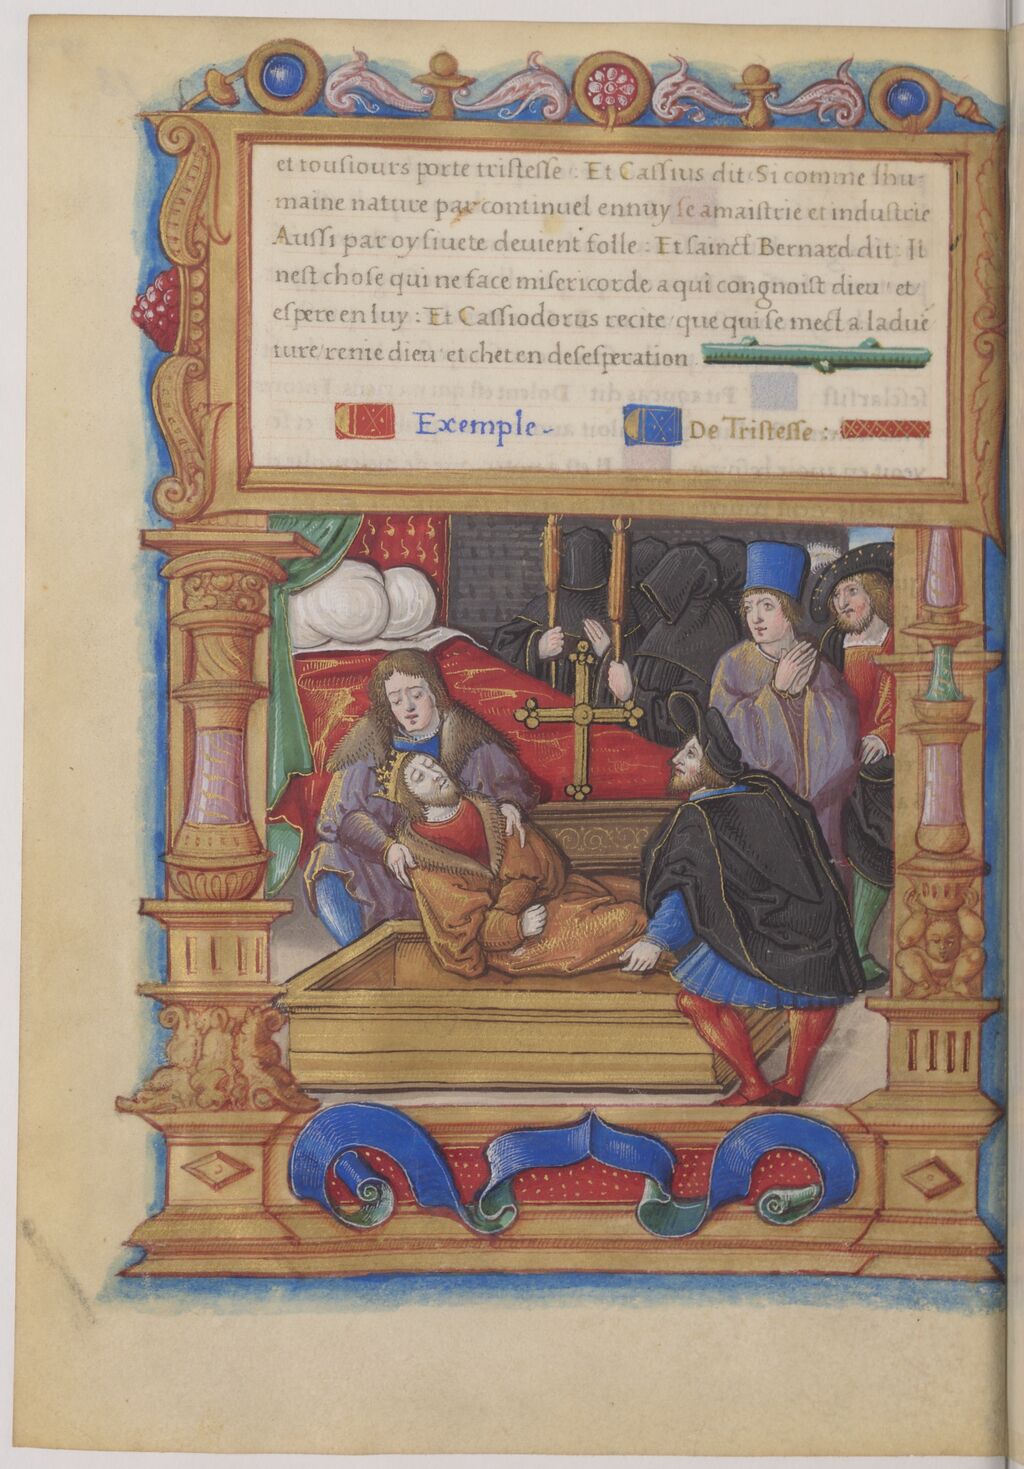 et tousiours porte tristesse : Et Cassius dit : Si comme lhu-
maine nature par continuel ennuy se amaistrie et industrie
Aussi par oysiuete deuient folle : Et sainct Bernard dit : Il
nest chose qui ne face misericorde a qui congnoist dieu et
espere en luy : Et Cassiodorus recite que qui se mect a laduē
ture renie dieu et chet en desesperation
Exemple - De Tristesse :